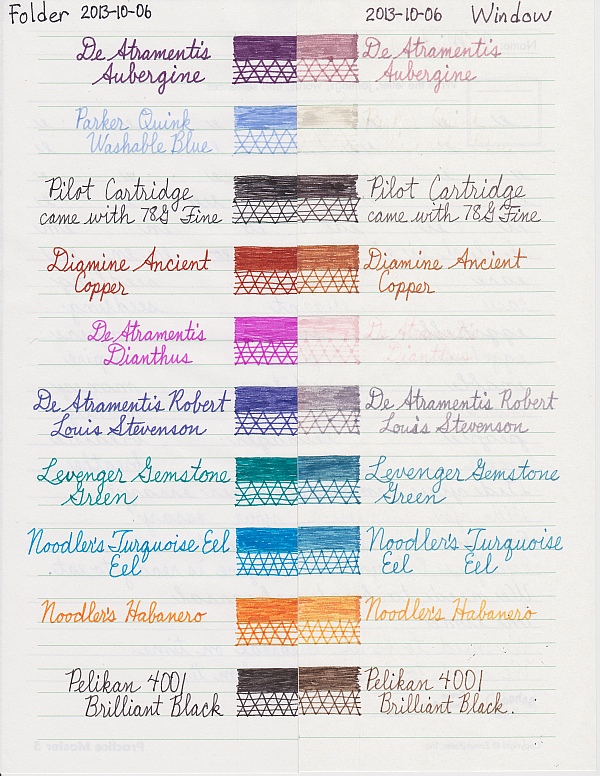 Folder 2013-10-06
2013-10-06 Window
De Atramentis
Aubergine
De Atramentis
Aubergine
Parker Quink
Washable Blue
Pilot Cartridge
came with 78G Fine
Pilot Cartridge
came with 78G Fine
Diamine Ancient
Copper
Diamine Ancient
Copper
De Atramentis
Dianthus
De Atramentis
Dianthus
De Atramentis Robert
Louis Stevenson
De Atramentis Robert
Louis Stevenson
Levenger Gemstone
Green
Levenger Gemstone
Green
Noodler's Turquoise Eel
Eel
Noodler's Turquoise
Eel Eel
Noodler's Habanero
Noodler's Habanero
Pelikan 4001
Brilliant Black
Pelikan 4001
Brilliant Black.
Practice Master 3